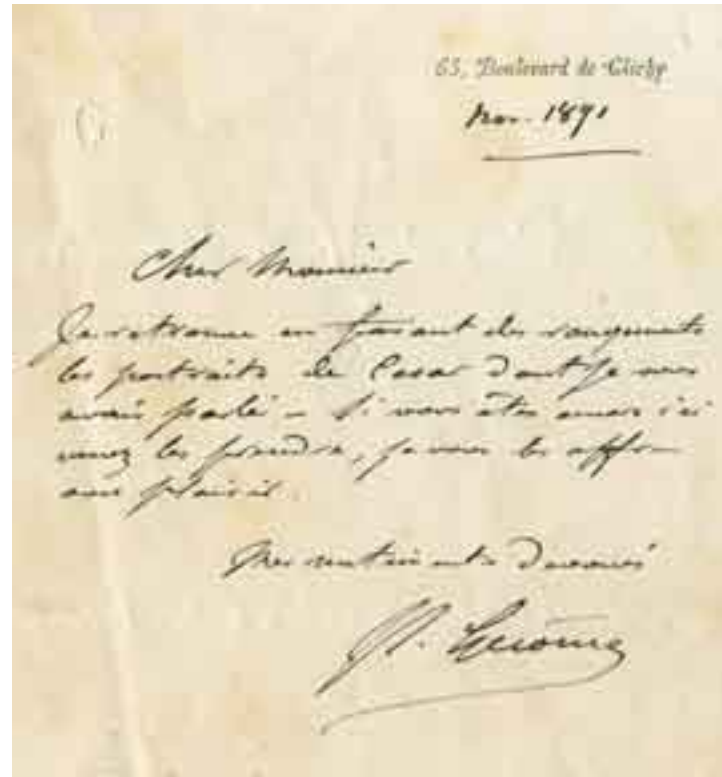 65, Boulevard de Clichy
nov. 1891
Cher Monsieur
Je retrouve en faisant des rangements
les portraits de César dont je vous
avais parlé – Si vous êtes encore ici
venez les prendre, je vous les offre
avec plaisir.
Mes sentiments dévoués
Gérôme